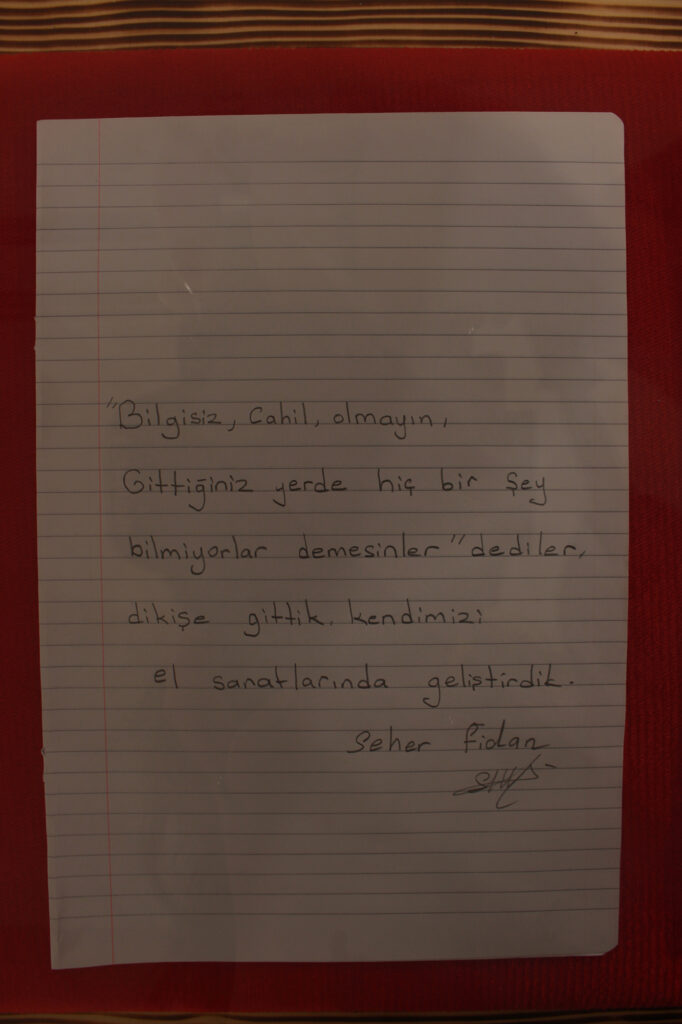 "Bilgisiz, Cahil, olmayın,
Gittiğiniz yerde hiç bir şey
bilmiyorlar demesinler" dediler,
dikişe gittik. kendimizi
el sanatlarında geliştirdik.
Seher Fidan